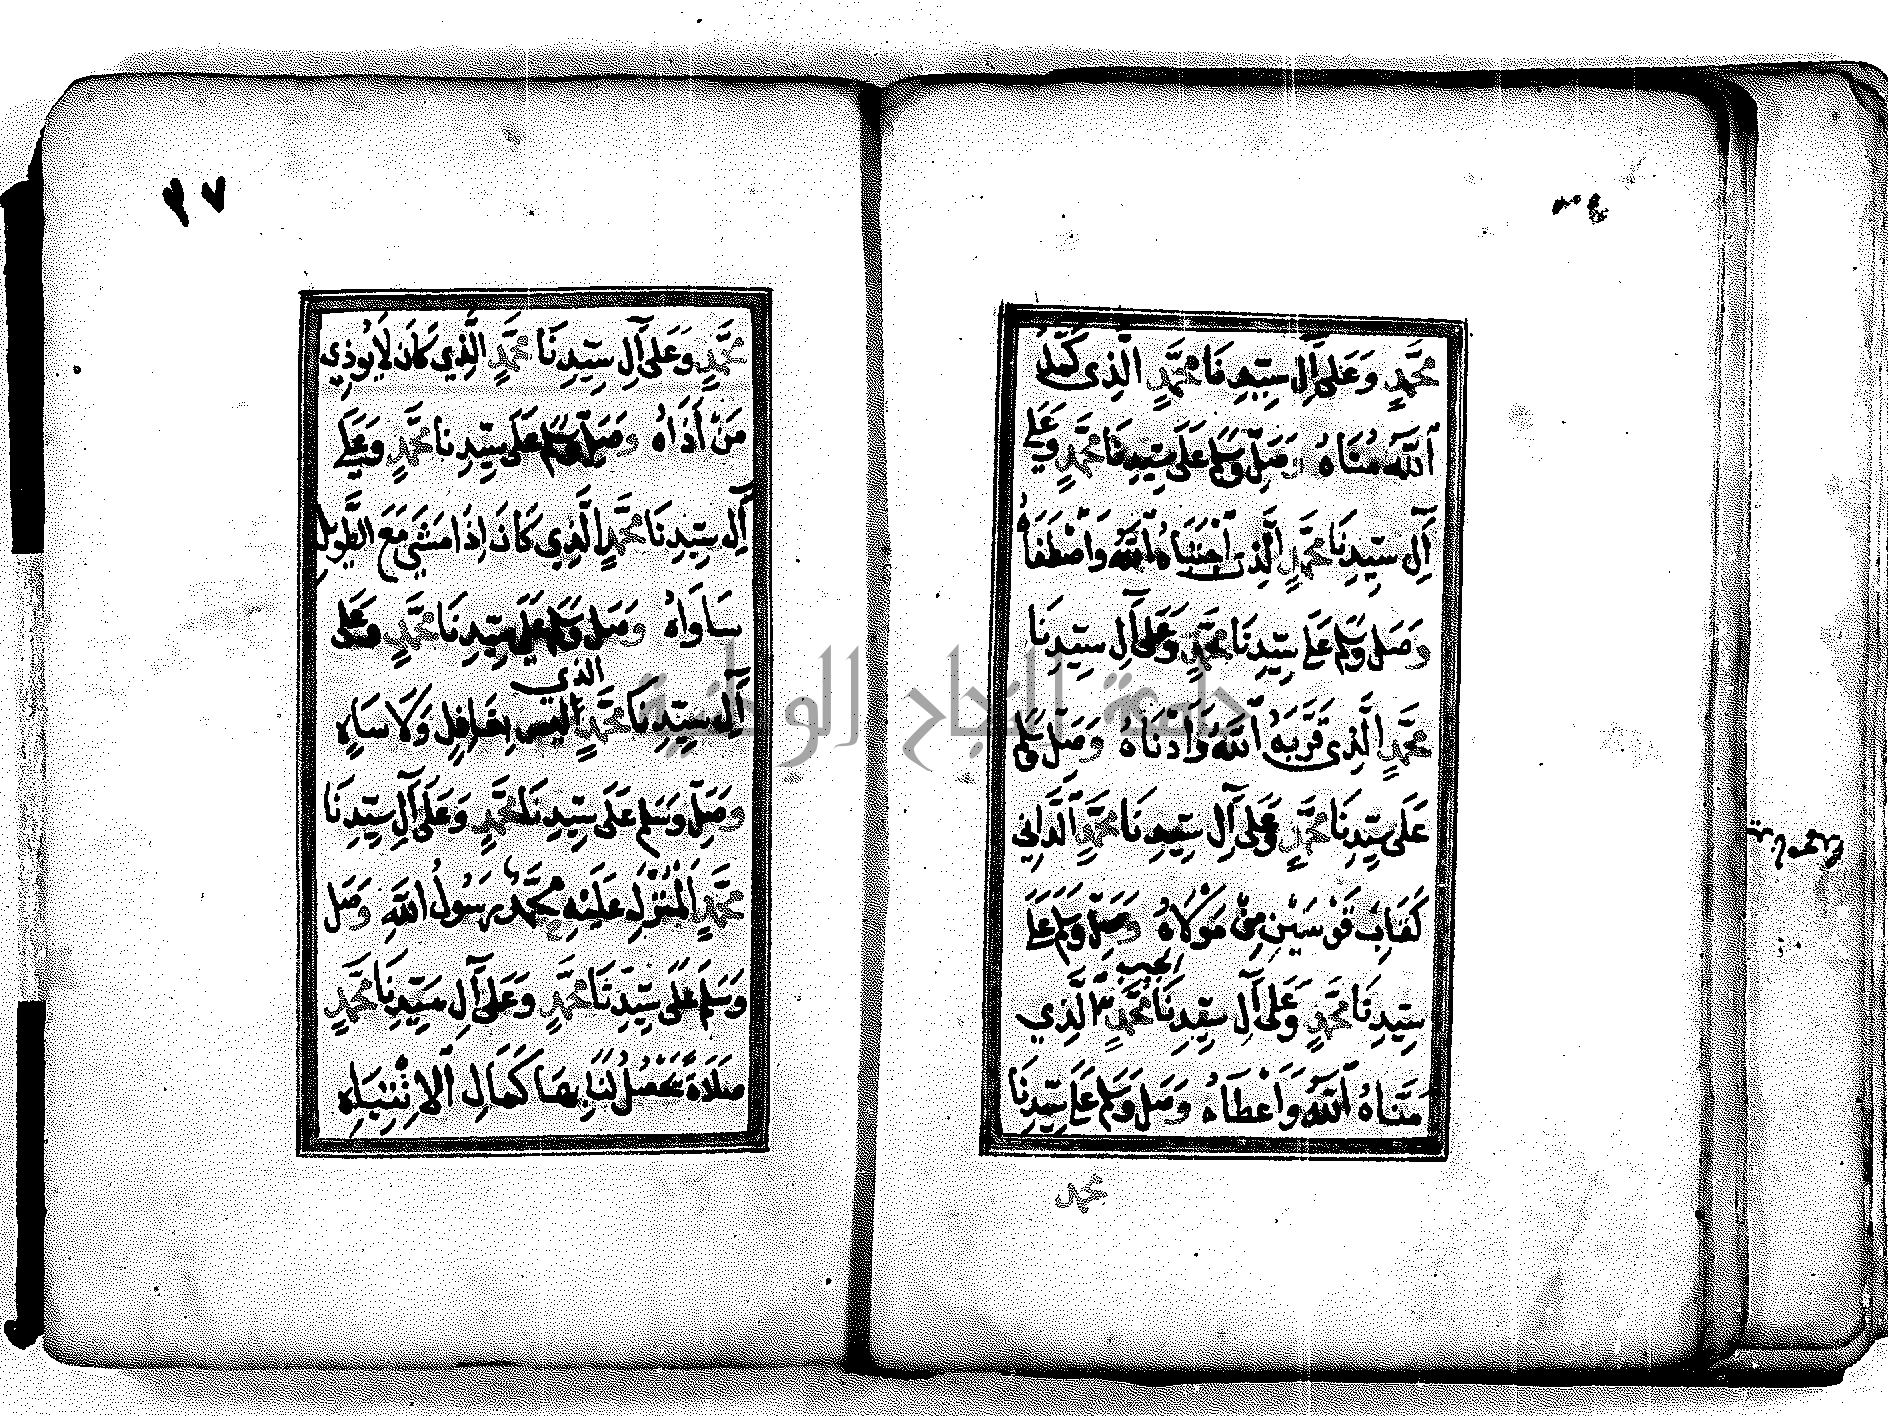 مُحَمَّدٍ وَعَلَى آلِ سَيِّدِنَا مُحَمَّدٍ الَّذِي كَمَّلَ
اَللّٰهُ مُنَاهُ وَصَلِّ وَسَلِّمْ عَلَى سَيِّدِنَا مُحَمَّدٍ وَعَلَى
آلِ سَيِّدِنَا مُحَمَّدٍ الَّذِي اَجْتَبَاهُ اَللّٰهُ وَاصْطَفَاهُ
وَصَلِّ وَسَلِّمْ عَلَى سَيِّدِنَا مُحَمَّدٍ وَعَلَى آلِ سَيِّدِنَا
مُحَمَّدٍ الَّذِي قَرَّبَهُ اَللّٰهُ وَأَدْنَاهُ وَصَلِّ وَسَلِّمْ
عَلَى سَيِّدِنَا مُحَمَّدٍ وَعَلَى آلِ سَيِّدِنَا مُحَمَّدٍ اَلدَّانِي
كَقَابَ قَوْسَيْنِ مِنْ مَوْلَاهُ وَصَلِّ وَسَلِّمْ عَلَى
سَيِّدِنَا مُحَمَّدٍ وَعَلَى آلِ سَيِّدِنَا مُحَمَّدٍ الَّذِي
مَتَّنَاهُ اَللّٰهُ وَاَعْطَاهُ وَصَلِّ وَسَلِّمْ عَلَى سَيِّدِنَا
محمد
٢٧
مُحَمَّدٍ وَعَلَى آلِ سَيِّدِنَا مُحَمَّدٍ الَّذِي كَانَ لَا يُوذِي
مَنْ أَذَاهُ وَصَلِّ وَسَلِّمْ عَلَى سَيِّدِنَا مُحَمَّدٍ وَعَلَى
آلِ سَيِّدِنَا مُحَمَّدٍ الَّذِي كَانَ إِذَا مَشَى مَعَ الطَّوِيلِ
سَاوَاهُ وَصَلِّ وَسَلِّمْ عَلَى سَيِّدِنَا مُحَمَّدٍ وَعَلَى
الذي
آلِ سَيِّدِنَا مُحَمَّدٍ لَيْسَ بِغَافِلٍ وَلَا سَاهٍ
وَصَلِّ وَسَلِّمْ عَلَى سَيِّدِنَا مُحَمَّدٍ وَعَلَى آلِ سَيِّدِنَا
مُحَمَّدٍ اَلْمُنْزَلِ عَلَيْهِ مُحَمَّدٌ رَسُولُ اللّٰهِ وَصَلِّ
وَسَلِّمْ عَلَى سَيِّدِنَا مُحَمَّدٍ وَعَلَى آلِ سَيِّدِنَا مُحَمَّدٍ
صَلَاةً تَحْصُلُ لَنَا بِهَا كَمَالِ اَلْاِنْتِبَاهِ
جامعة النجاح الوطنية